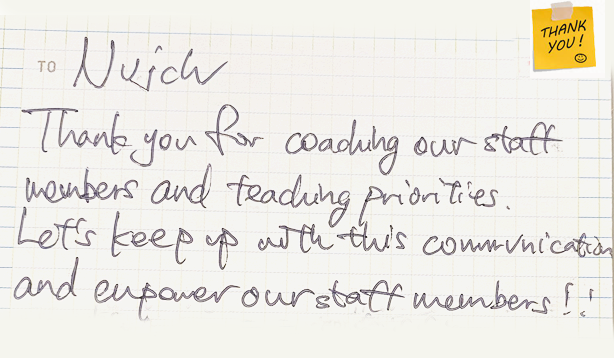 THANK
YOU!
TO
Thank you for coaching our staff
members and teaching priorities.
Let's keep up with this communication
and empower our staff members!!